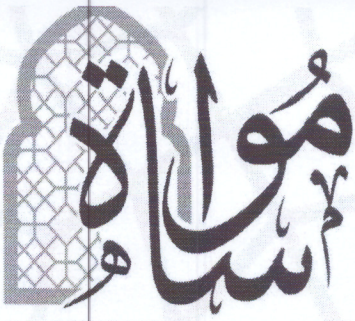 مُواساة